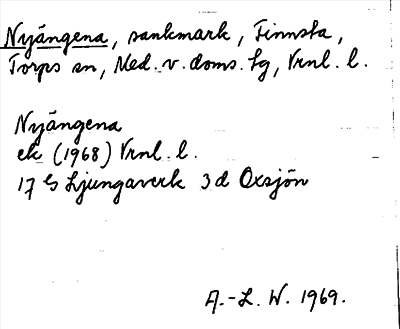 Nyängena, sankmark, Finnsta,
Torps sn, Med. v. doms. tg, Vrnl. l.
Nyängena
ek (1968) Vrnl. l.
17 G Ljungaverk 3 d Oxsjön
A.-L. W. 1969.